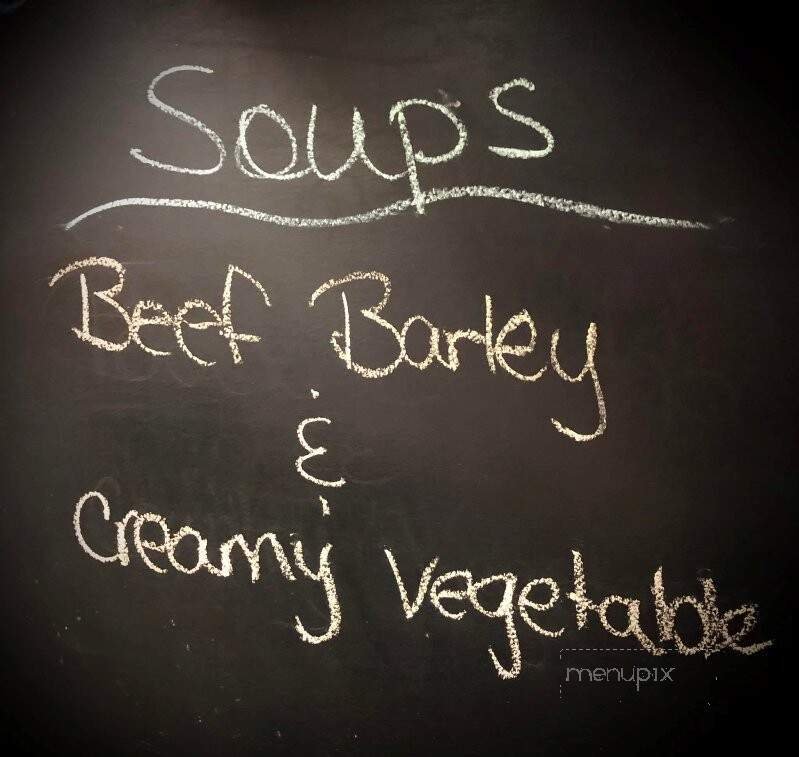 Soups
Beef Barley
&
Creamy Vegetable
menupix